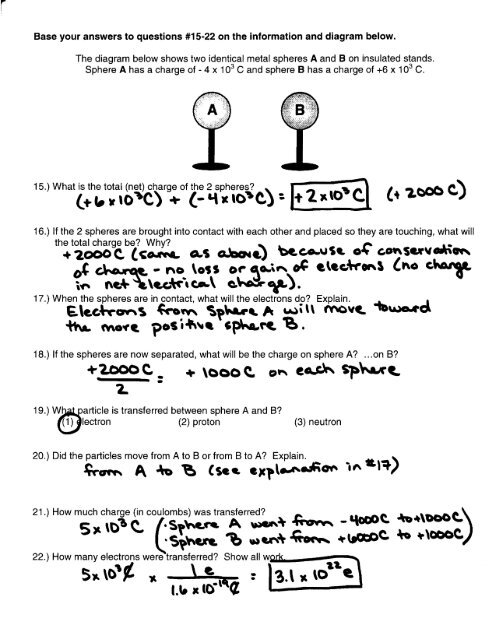 Base your answers to questions #15-22 on the information and diagram below.
The diagram below shows two identical metal spheres A and B on insulated stands.
Sphere A has a charge of - 4 x 10³ C and sphere B has a charge of +6 x 10³ C.
A B
15.) What is the total (net) charge of the 2 spheres?
(+6x10³C) + (-4x10³C) = +2x10³C (+2000C)
16.) If the 2 spheres are brought into contact with each other and placed so they are touching, what will
the total charge be? Why?
+2000C (same as above) because of conservation
of charge - no loss or gain of electrons (no change
in net electrical charge).
17.) When the spheres are in contact, what will the electrons do? Explain.
Electrons from Sphere A will move toward
the more positive sphere B.
18.) If the spheres are now separated, what will be the charge on sphere A? ...on B?
+2000C/2 = +1000C on each sphere
19.) What particle is transferred between sphere A and B?
(1) electron (2) proton (3) neutron
20.) Did the particles move from A to B or from B to A? Explain.
from A to B (see explanation in #17)
21.) How much charge (in coulombs) was transferred?
5x10³C (·Sphere A went from -4000C to +1000C)
(·Sphere B went from +6000C to +1000C)
22.) How many electrons were transferred? Show all work.
5x10³C x 1e/1.6x10⁻¹⁹C = 3.1x10²²e